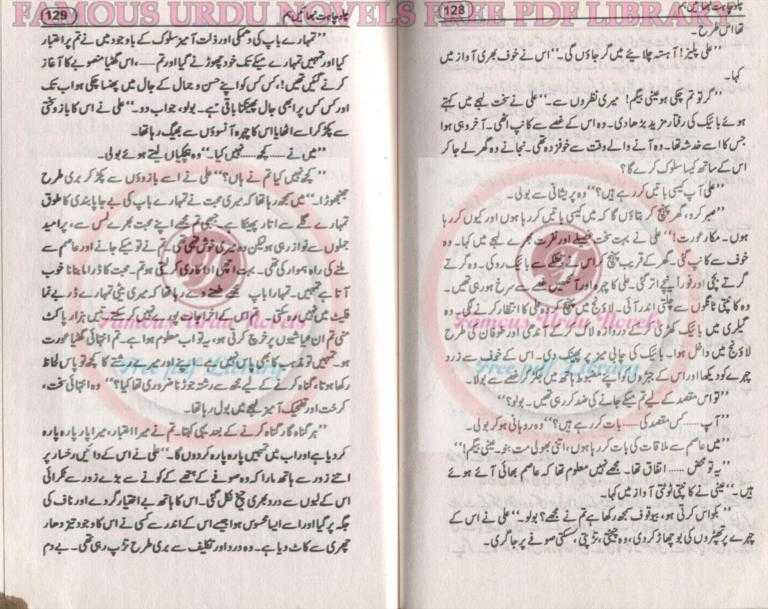 FAMOUS URDU NOVELS FREE PDF LIBRARY
128
چاہو چاہت نبھائیں ہم
تھا اس طرح۔
”علی پلیز! آہستہ چلائیے میں گر جاؤں گی۔“ اس نے خوف بھری آواز میں
کہا۔
”گر تو تم چکی ہو عینی بیگم! میری نظروں سے۔“ علی نے سخت لہجے میں کہتے
ہوئے بائیک کی رفتار مزید بڑھا دی۔ وہ اس کے غصے سے کانپ اٹھی۔ آخر وہی ہوا
جس کا اسے خدشہ تھا۔ وہ آنے والے وقت سے خوفزدہ تھی۔ نجانے وہ گھر لے جا کر
اس کے ساتھ کیسا سلوک کرے گا؟
”علی آپ کیسی باتیں کر رہے ہیں؟“ وہ پریشانی سے بولی۔
”صبر کرو، گھر پہنچ کر بتاؤں گا کہ میں کیسی باتیں کر رہا ہوں اور کیوں کر رہا
ہوں۔ مکار عورت! علی نے بہت سخت غصیلے اور نفرت بھرے لہجے میں کہا۔ وہ
خوف سے کانپ گئی۔ گھر کے قریب پہنچ کر اس نے جھٹکے سے بائیک روکی۔ وہ گرتے
گرتے بچی اور فوراً نیچے اتر گئی۔ علی کا چہرہ اور آنکھیں غصے سے سرخ ہو رہی تھیں۔
وہ کانپتی ٹانگوں سے چلتی اندر آئی۔ لاؤنج میں پہنچ کر وہ علی کا انتظار کرنے لگی۔ وہ
گیلری میں بائیک کھڑی کر کے دروازہ لاک کر کے آندھی اور طوفان کی طرح
لاؤنج میں داخل ہوا۔ بائیک کی چابی میز پر پھینک دی۔ اس کے خوف سے زرد
چہرے کو دیکھا اور اس کے جبڑوں کو اپنے مضبوط ہاتھ میں جکڑ کر غصے سے بولا۔
”تو اس مقصد کے لیے تم میکے جانے کی ضد کر رہی تھیں۔ بولو؟“
”آپ ..... کس مقصد کی ..... بات کر رہے ہیں؟“ وہ روہانسی ہو کر بولی۔
”میں عاصم سے ملاقات کی بات کر رہا ہوں، اتنی بھولی مت بنو۔ عینی بیگم!“
”یہ تو محض ..... اتفاق تھا۔ مجھے نہیں معلوم تھا کہ عاصم بھائی آئے ہوئے
ہیں۔“ عینی نے کانپتی ٹوٹتی آواز میں کہا۔
”بکواس کرتی ہو، بیوقوف سمجھ رکھا ہے تم نے مجھے؟ بولو۔“ علی نے اس کے
چہرے پر تھپڑوں کی بوچھاڑ کر دی، وہ چیختی، تڑپتی، سسکتی صوفے پر جا گری۔
Famous Urdu Novels
Free pdf Library
129
چاہو چاہت نبھائیں ہم
”تمہارے باپ کی دھمکی اور ذلت آمیز سلوک کے باوجود میں نے تم پر اعتبار
کیا اور تمہیں تمہارے میکے تک خود چھوڑنے گیا اور تم ..... اس گھٹیا منصوبے کا آغاز
کرنے گئی تھیں!، کس کس کو اپنے حسن و جمال کے جال میں پھنسا چکی ہو اب تک
اور کس کس پر ابھی جال پھینکنا باقی ہے۔ بولو، جواب دو۔“ علی نے اس کا بازو سختی
سے پکڑ کر اسے اٹھایا اس کا چہرہ آنسوؤں سے بھیگ رہا تھا۔
”میں نے ..... کچھ ..... نہیں کیا۔“ وہ ہچکیاں لیتے ہوئے بولی۔
”کچھ نہیں کیا تم نے ہاں؟“ علی نے اسے بازوؤں سے پکڑ کر بری طرح
جھنجھوڑا۔ ”میں سمجھ رہا تھا کہ میری محبت نے تمہارے باپ کی بے جا پابندی کا طوق
تمہارے گلے سے اتار پھینکا ہے جبھی تم مجھے اپنے محبت بھرے لمس سے، پر امید
جملوں سے نواز رہی ہو لیکن وہ میری خوش فہمی تھی کہ تم نے تو میکے جانے اور عاصم سے
ملنے کی راہ ہموار کی تھی۔ بہت اچھی اداکاری کرتی ہو تم۔ محبت کا ڈرامہ رچانا خوب
آتا ہے تمہیں۔ تمہارا باپ مجھے طعنے دے رہا تھا کہ میری بیٹی تمہارے ڈربے نما
فلیٹ میں نہیں رہ سکتی۔ تم اس کے اخراجات پورے نہیں کر سکتے، تیس ہزار پاکٹ
منی تم ان عیاشیوں پر خرچ کرتی ہو، یہ تو اب معلوم ہوا ہے۔ تم انتہائی گھٹیا عورت
ہو۔ تمہیں تو مذہب کا بھی پاس نہیں ہے۔ اپنے اور میرے رشتے کا کچھ تو پاس لحاظ
رکھا ہوتا، گناہ کرنے کے لیے مجھ سے رشتہ جوڑنا ضروری تھا کیا؟“ وہ انتہائی سخت،
کرخت اور تضحیک آمیز لہجے میں بول رہا تھا۔
”ہر گناہ گار گناہ کرنے کے بعد یہی کہتا۔ تم نے میرا اعتبار، میرا پیار پارہ پارہ
کر دیا ہے اور اب میں تمہیں پارہ پارہ کر دوں گا۔“ علی نے اس کے دائیں رخسار پر
اتنے زور سے ہاتھ مارا کہ وہ صوفے کے ہتھے کے کونے سے بڑے زور سے ٹکرائی
اس کے لبوں سے درد بھری چیخ نکل گئی۔ اس کا ہاتھ بے اختیار گردے اور ناف کی
جگہ پر گیا اور اسے ایسا محسوس ہوا جیسے اس کے اندر سے کسی نے اس کا وجود تیز دھار
چھری سے کاٹ دیا ہے۔ وہ درد اور تکلیف سے بری طرح تڑپ رہی تھی۔ بے دم
Famous Urdu Novels
Free pdf Library